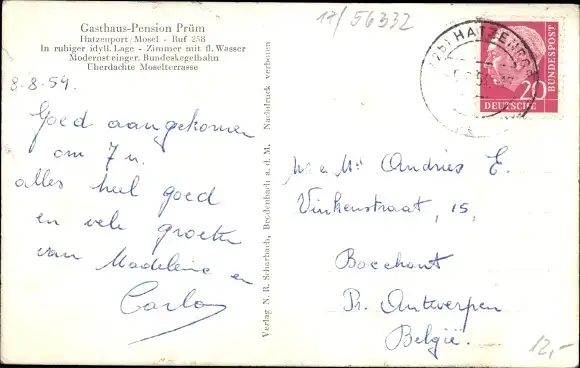 Gasthaus-Pension Prüm
Hatzenport/Mosel - Ruf 258
In ruhiger idyll. Lage - Zimmer mit fl. Wasser
Modernst einger. Bundeskegelbahn
Überdachte Moselterrasse
8-8-54.
Goed aangekomen
om 7 u.
alles heel goed
en vele groeten
van Madeleine en
Carlo
Verlag N. R. Scharbach, Brodenbach a. d. M. Nachdruck verboten
17/56332
HATZENPORT
20
DEUTSCHE
BUNDESPOST
M en Mr Andries E.
Vinkenstraat, 15,
Boechout
Pr. Antwerpen
België.
12,-